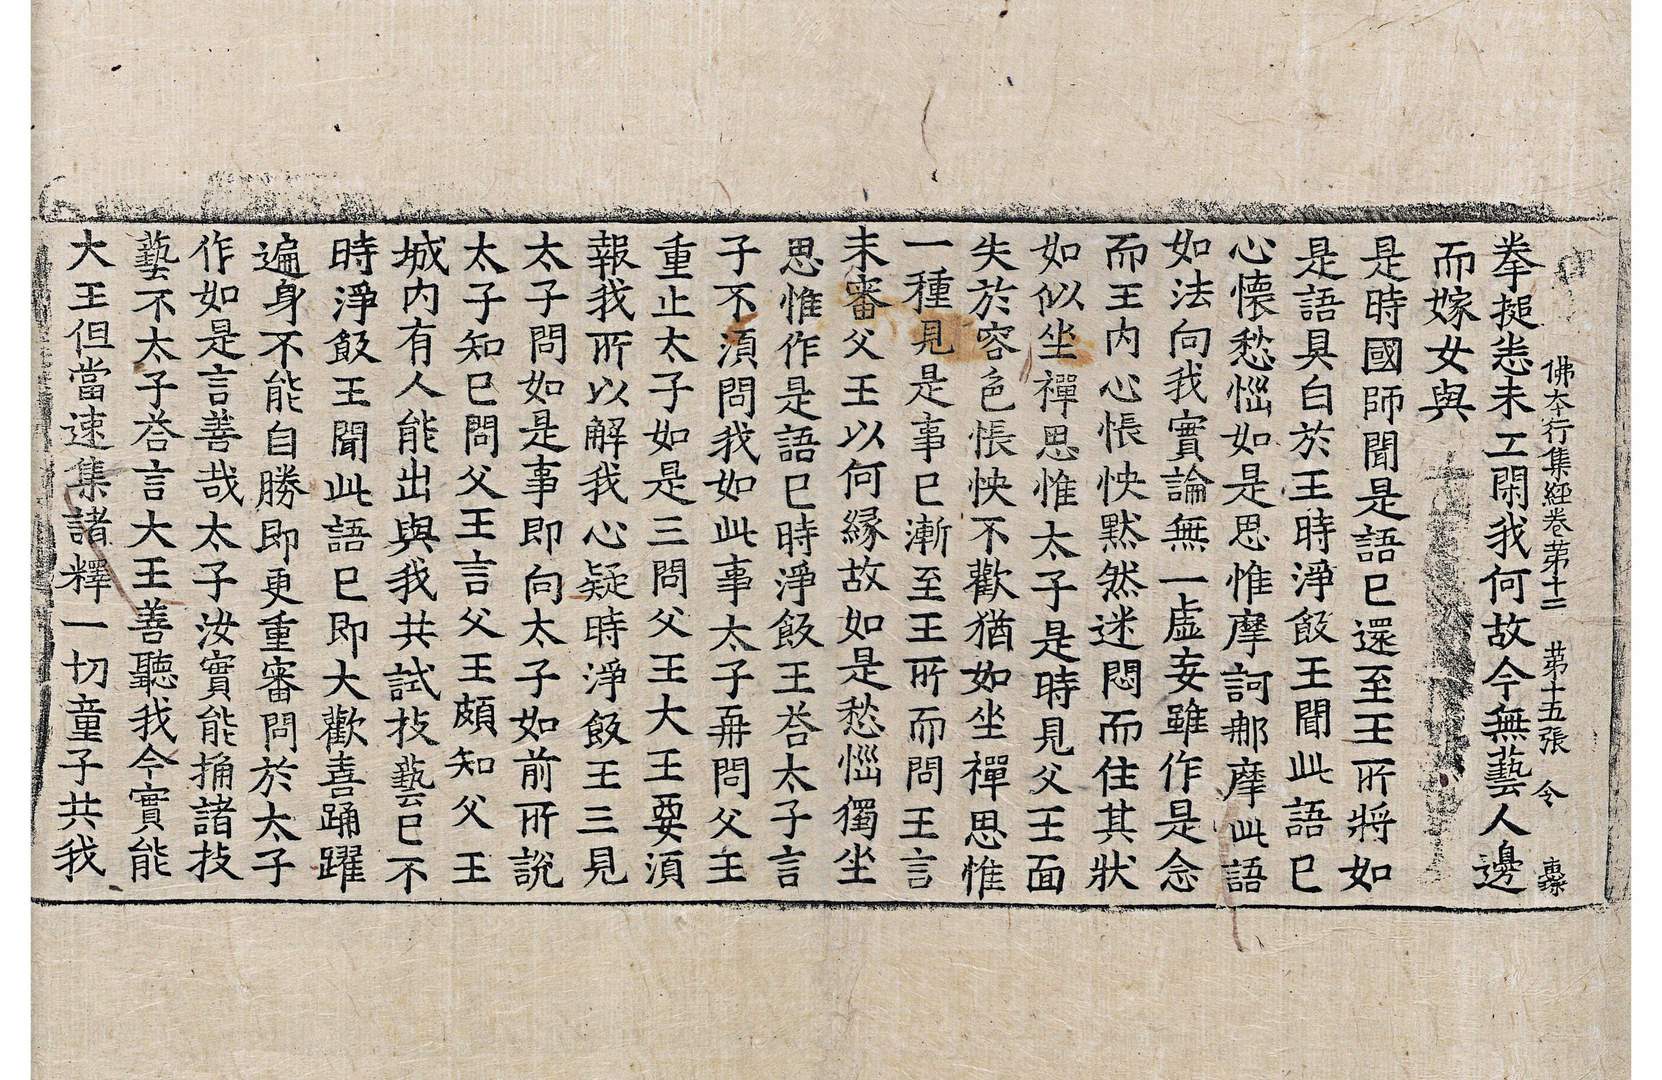 佛本行集經卷苐十二 苐十五張 令
拳搥恙未工閑我何故今無藝人邊
而嫁女與
是時國師聞是語已還至王所將如
是語具白於王時淨飯王聞此語已
心懷愁惱如是思惟摩訶那摩此語
如法向我實論無一虛妄雖作是念
而王內心悵怏默然迷悶而住其狀
如似坐禪思惟太子是時見父王面
失於容色悵怏不歡猶如坐禪思惟
一種見是事已漸至王所而問王言
未審父王以何緣故如是愁惱獨坐
思惟作是語已時淨飯王荅太子言
子不須問我如此事太子再問父王
重止太子如是三問父王大王要須
報我所以解我心疑時淨飯王三見
太子問如是事即向太子如前所說
太子知已問父王言父王頗知父王
城內有人能出與我共試技藝已不
時淨飯王聞此語已即大歡喜踊躍
遍身不能自勝即更重審問於太子
作如是言善哉太子汝實能捔諸技
藝不太子荅言大王善聽我今實能
大王但當速集諸釋一切童子共我